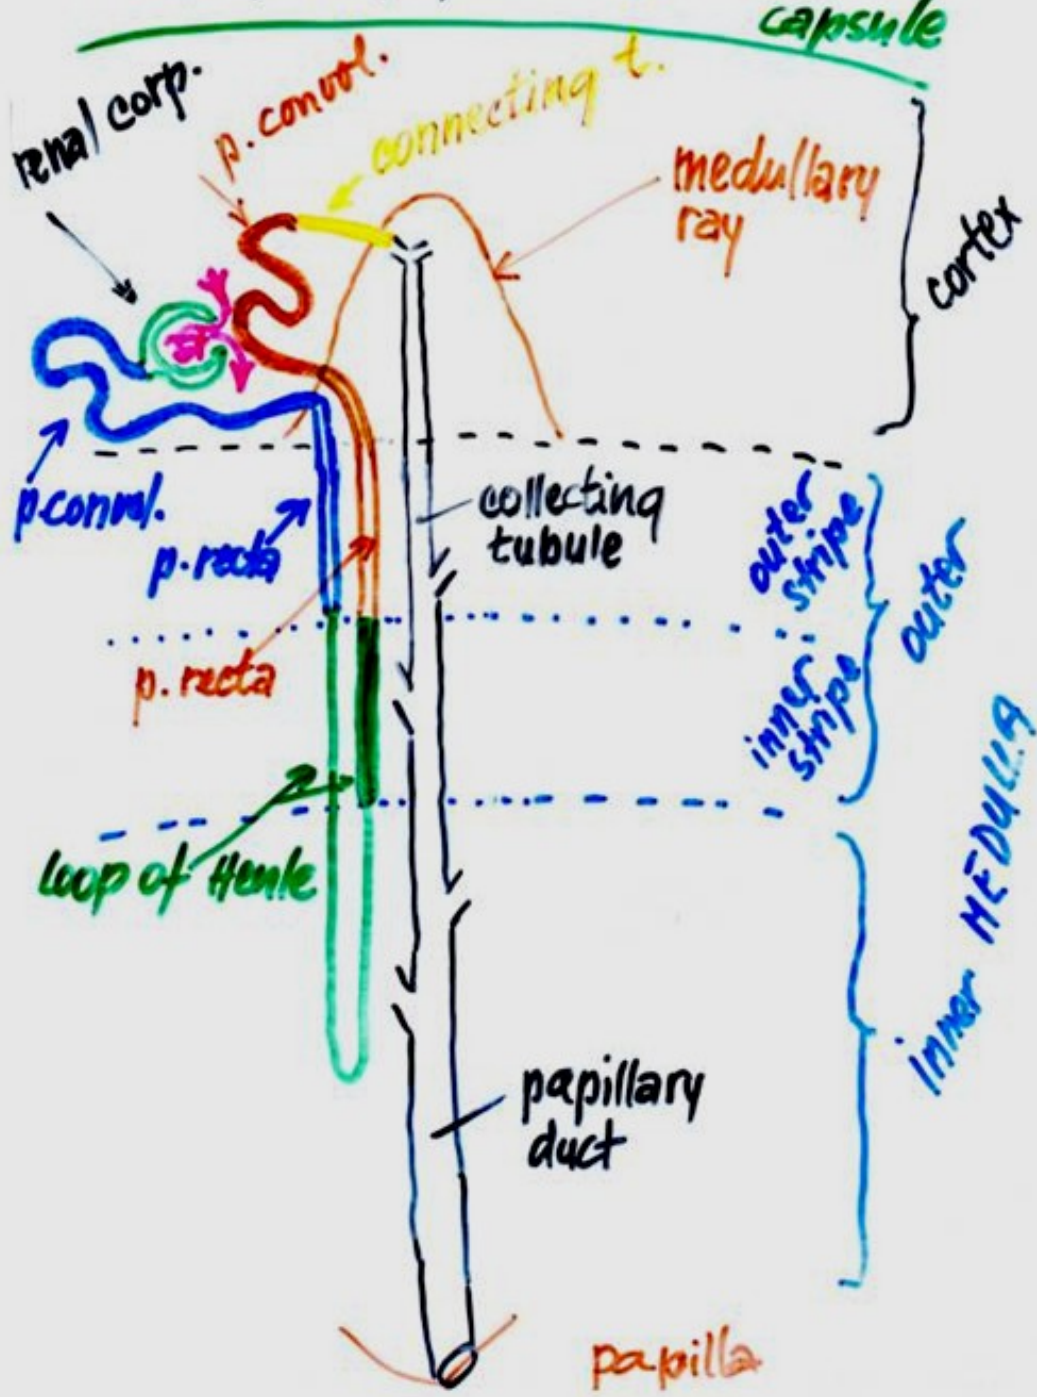 capsule
renal corp.
p. convol.
connecting t.
medullary
ray
cortex
p.convol.
p. recta
collecting
tubule
outer
stripe
outer
p. recta
inner
stripe
loop of Henle
inner MEDULLA
papillary
duct
papilla